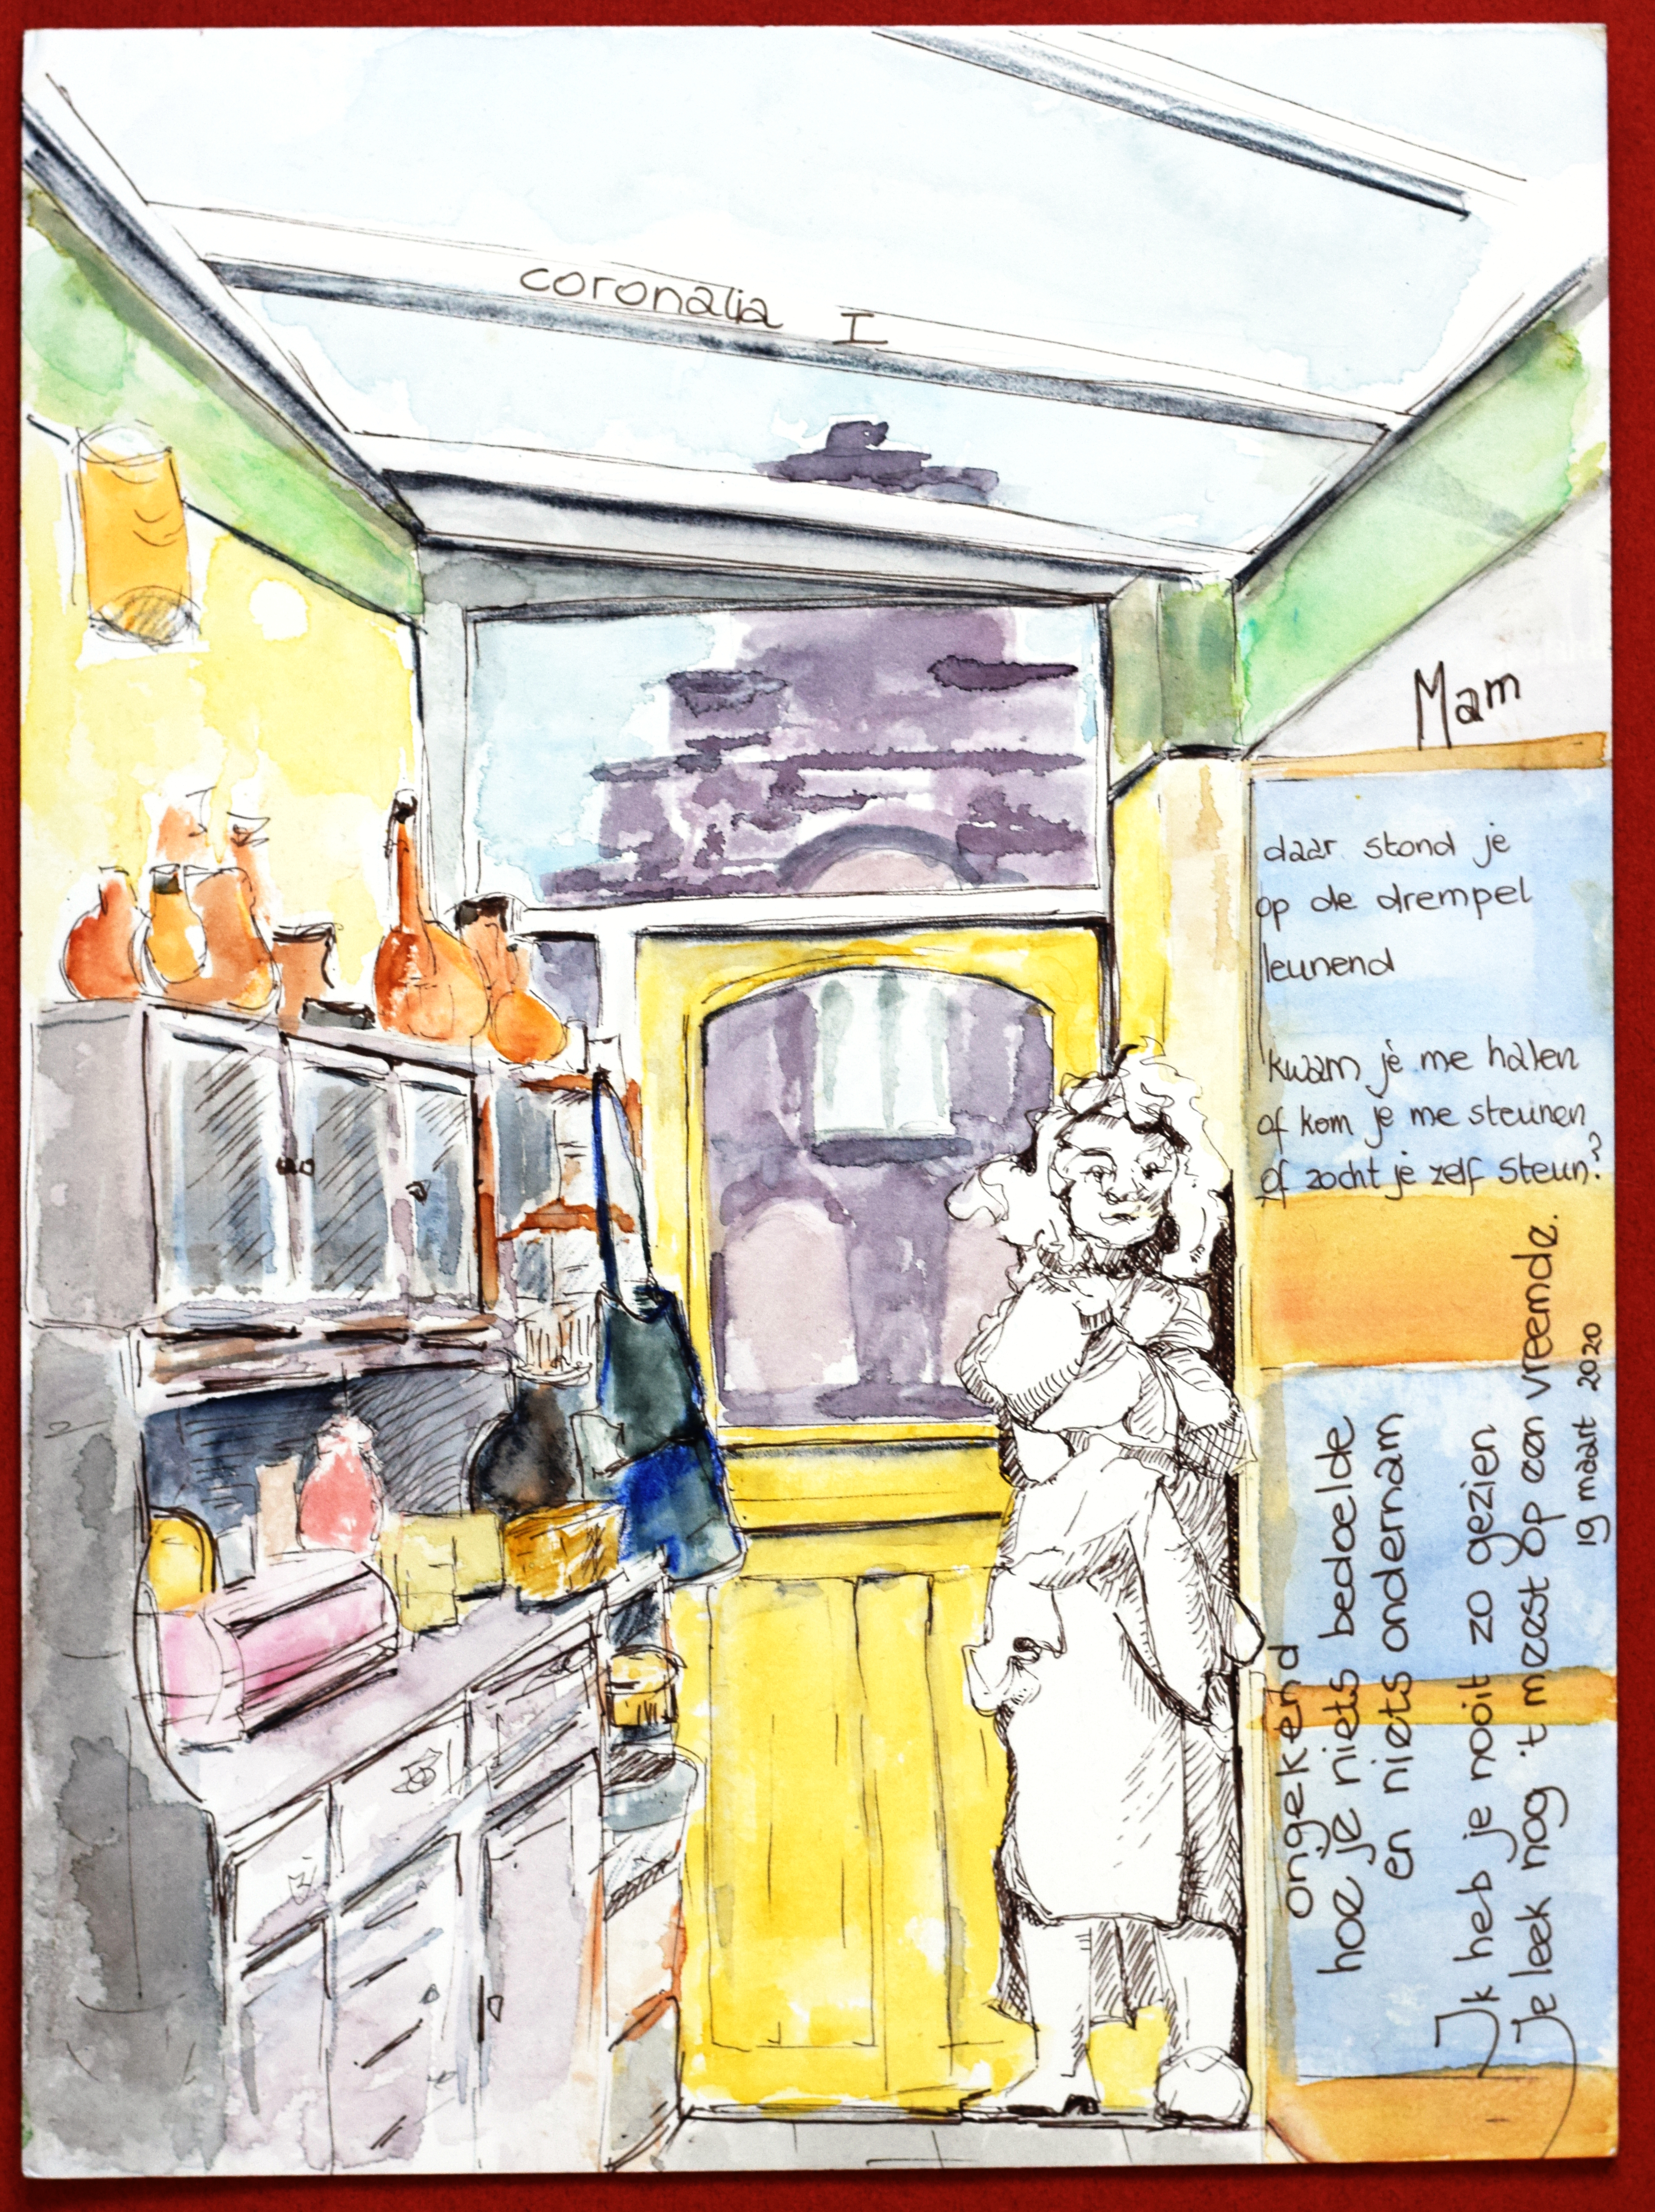 coronalia I
Mam
daar stond je
op de drempel
leunend
kwam je me halen
of kom je me steunen
of zocht je zelf steun?
ongekend
hoe je niets bedoelde
en niets ondernam
Ik heb je nooit zo gezien
Je leek nog 't meest op een vreemde.
19 maart 2020